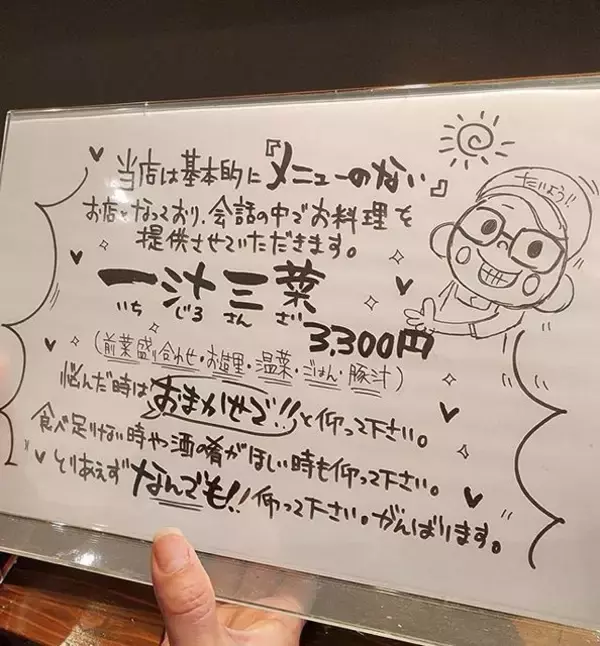 当店は基本的に『メニューのない』
お店となっており、会話の中でお料理を
提供させていただきます。
一汁三菜
いち じる さん さい
3,300円
(前菜盛り合わせ・お造里・温菜・ごはん・豚汁)
悩んだ時は おまかせで!! と仰って下さい。
食べ足りない時や酒の肴がほしい時も仰って下さい。
とりあえず なんでも!! 仰って下さい。がんばります。
たいよう!!